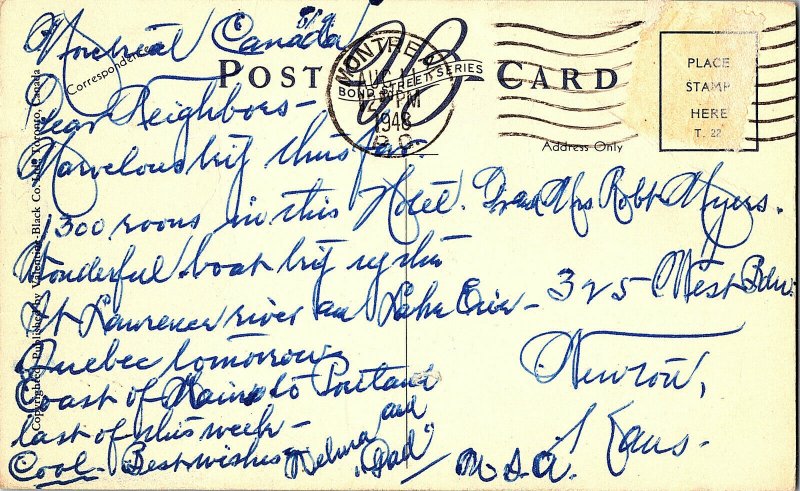 Montreal Canada 8/9
Correspondence
POST CARD
BOND STREET SERIES
MONTREAL
AUG
PM
1948
P.Q.
PLACE
STAMP
HERE
T. 22
Address Only
Dear Neighbors -
Marvelous trip thus far.
1300 rooms in this Hotel.
Wonderful boat trip up the
St Lawrence river and Lake Erie -
Quebec tomorrow
Coast of Maine to Portland
last of this week -
Cool - Best wishes Velma and "Dad"
Mrs Robt Myers.
325 West Bdw.
Newton,
Kans.
U.S.A.
Copyrighted - Published by Valentine-Black Co. Ltd., Toronto, Canada